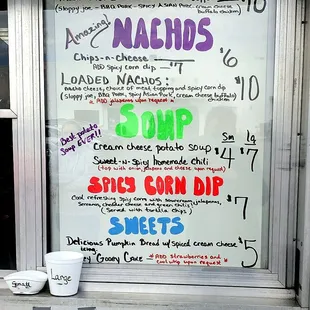 (Sloppy Joe - BBQ Pork - Spicy Asian Pork, Cream cheese buffalo chicken)
10
Amazing!
NACHOS
Chips-n-cheese
6
ADD Spicy corn dip — 7
LOADED NACHOS:
10
Nacho cheese, choice of meat topping and Spicy corn dip
(Sloppy Joe, BBQ Pork, Spicy Asian Pork, cream cheese buffalo chicken)
* ADD jalapenos upon request *
SOUP
Best potato
Soup EVER!!
Sm Lg
Cream cheese potato soup
4 7
Sweet-n-Spicy homemade chili
(top with onion, jalapeno and cheese upon request)
SPICY CORN DIP
Cool refreshing spicy corn with sourcream, jalapenos,
cheddar cheese and green chili
7
(Served with tortilla chips)
SWEETS
Delicious Pumpkin Bread w/ spiced cream cheese
5
Gooey Cake
* ADD Strawberries and
cool whip upon request *
Small
Large